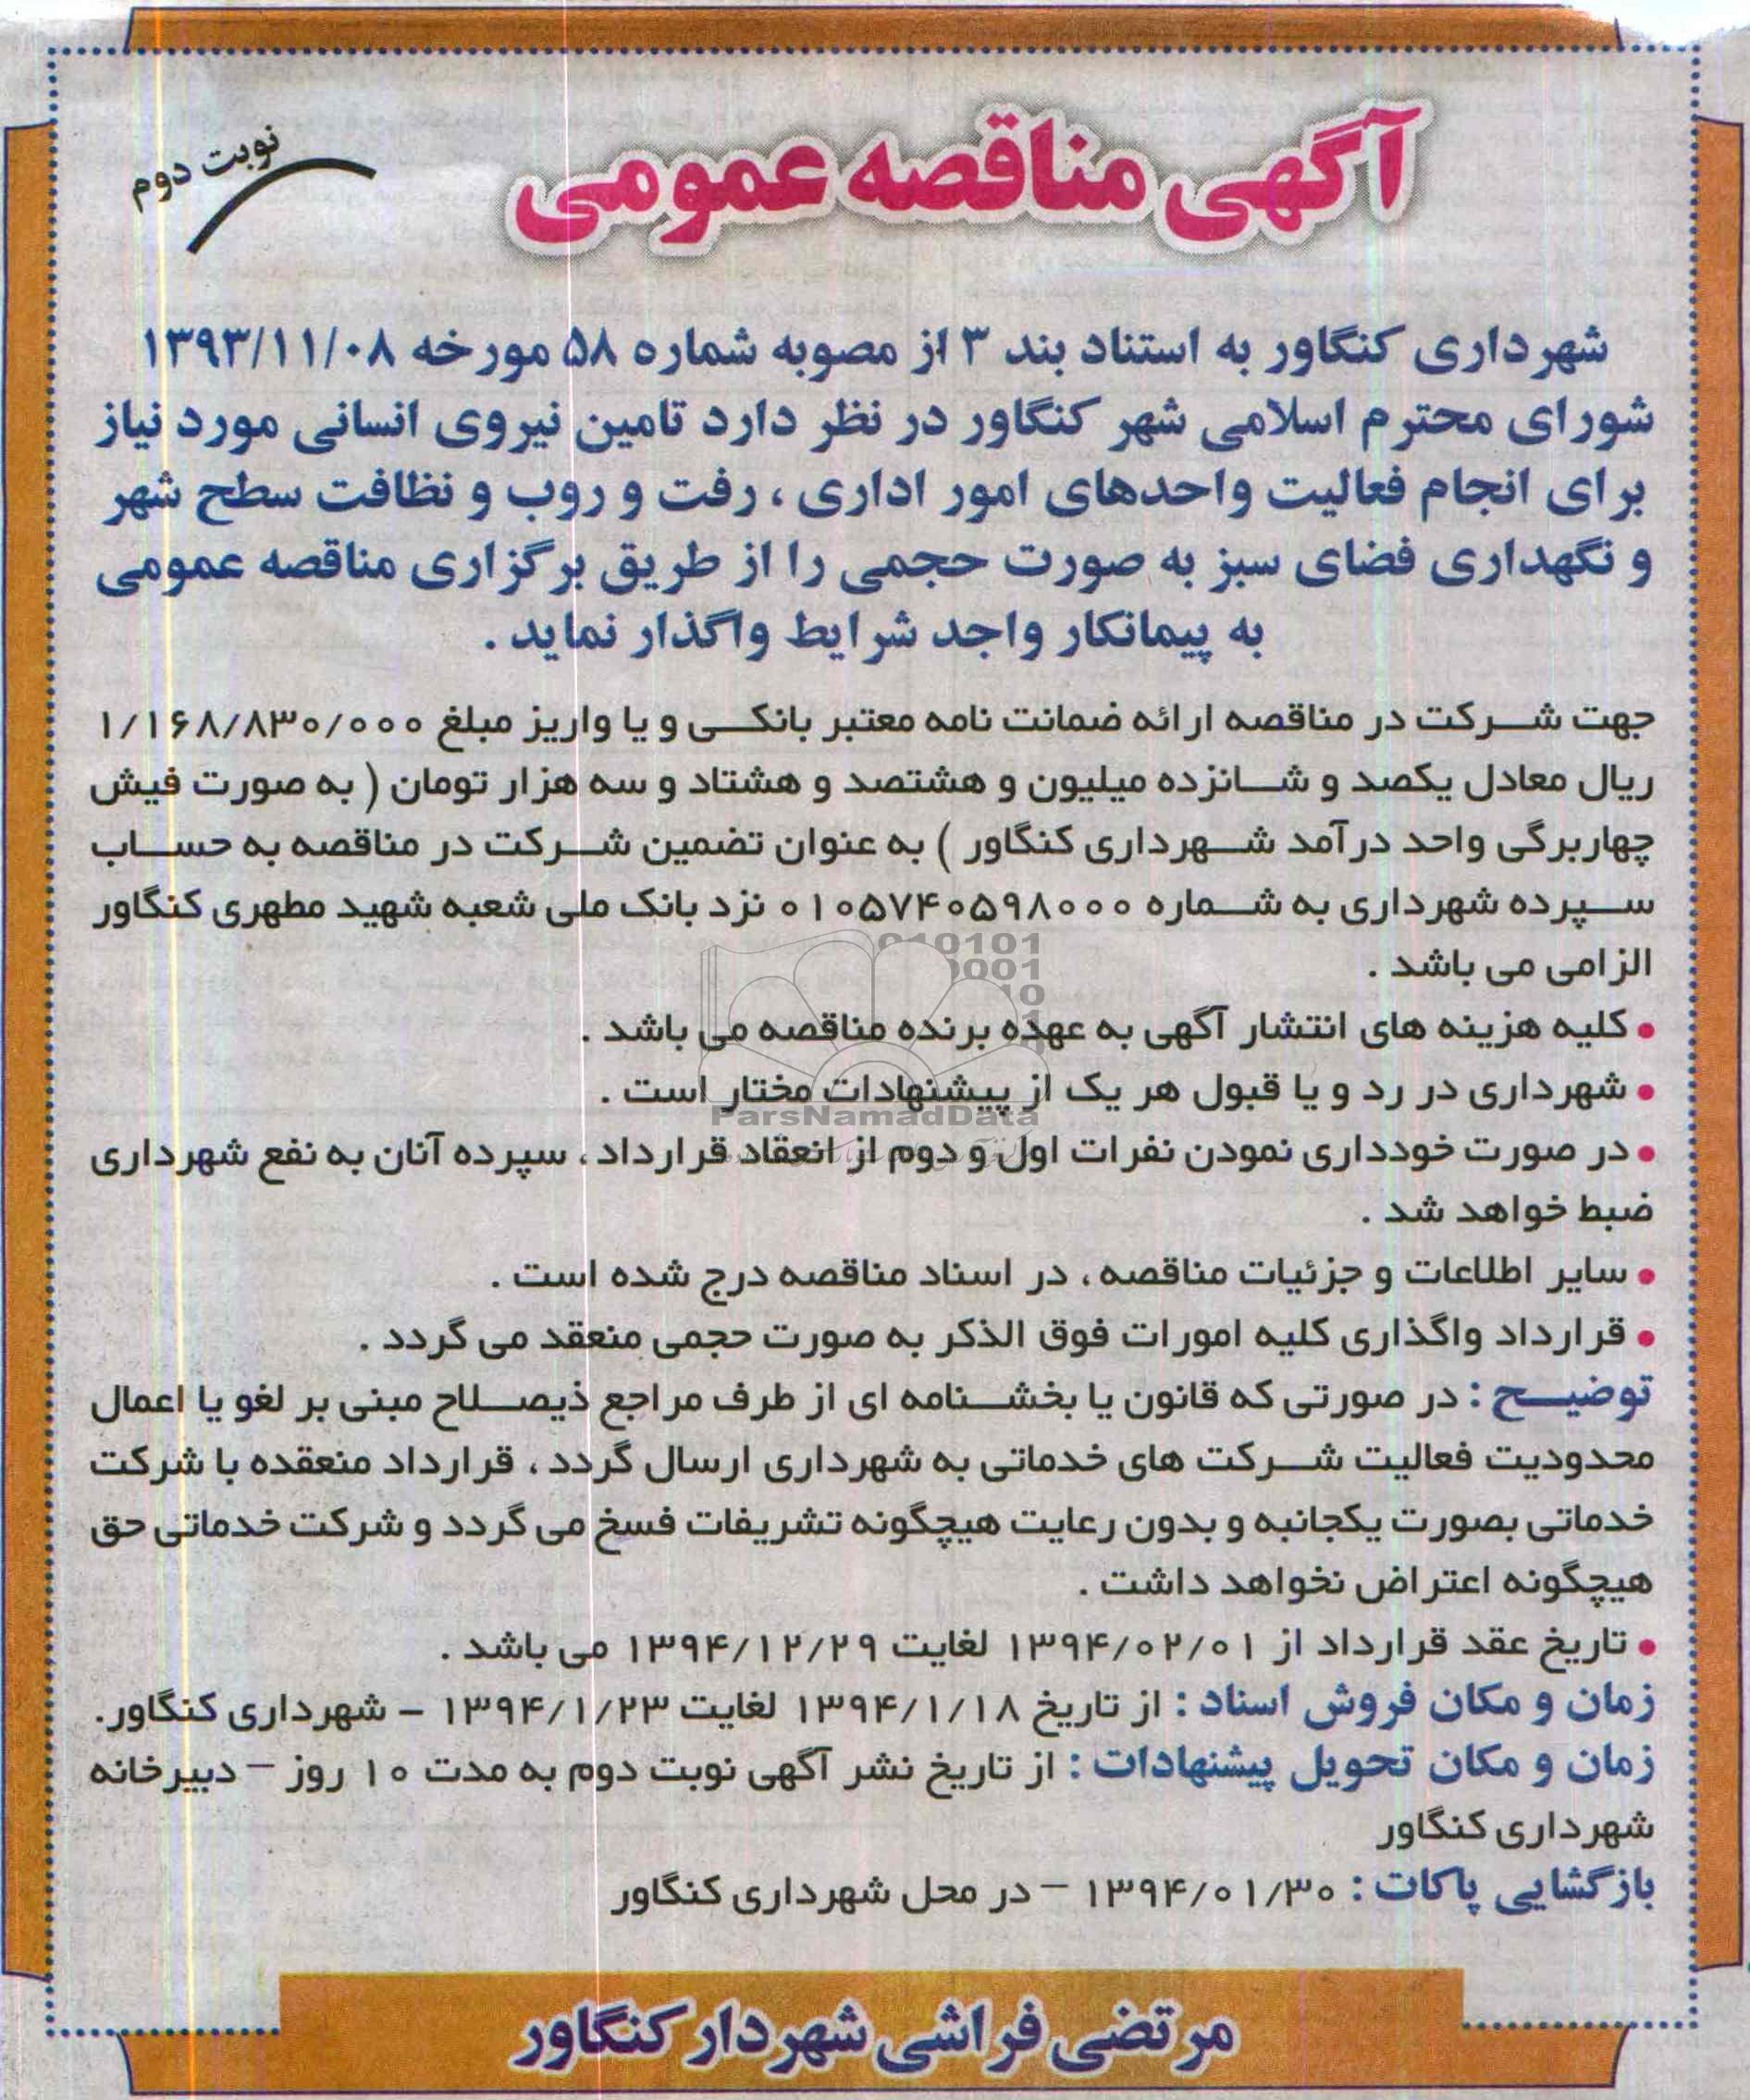 آگهی مناقصه عمومی
نوبت دوم
شهرداری کنگاور به استناد بند ۳ از مصوبه شماره ۵۸ مورخه ۱۳۹۳/۱۱/۰۸
شورای محترم اسلامی شهر کنگاور در نظر دارد تامین نیروی انسانی مورد نیاز
برای انجام فعالیت واحدهای امور اداری ، رفت و روب و نظافت سطح شهر
و نگهداری فضای سبز به صورت حجمی را از طریق برگزاری مناقصه عمومی
به پیمانکار واجد شرایط واگذار نماید .
جهت شرکت در مناقصه ارائه ضمانت نامه معتبر بانکی و یا واریز مبلغ ۱/۱۶۸/۸۳۰/۰۰۰
ریال معادل یکصد و شانزده میلیون و هشتصد و هشتاد و سه هزار تومان ( به صورت فیش
چهاربرگی واحد درآمد شهرداری کنگاور ) به عنوان تضمین شرکت در مناقصه به حساب
سپرده شهرداری به شماره ۰۱۰۵۷۴۰۵۹۸۰۰۰ نزد بانک ملی شعبه شهید مطهری کنگاور
الزامی می باشد .
• کلیه هزینه های انتشار آگهی به عهده برنده مناقصه می باشد .
• شهرداری در رد و یا قبول هر یک از پیشنهادات مختار است .
• در صورت خودداری نمودن نفرات اول و دوم از انعقاد قرارداد ، سپرده آنان به نفع شهرداری
ضبط خواهد شد .
• سایر اطلاعات و جزئیات مناقصه ، در اسناد مناقصه درج شده است .
• قرارداد واگذاری کلیه امورات فوق الذکر به صورت حجمی منعقد می گردد .
توضیح : در صورتی که قانون یا بخشنامه ای از طرف مراجع ذیصلاح مبنی بر لغو یا اعمال
محدودیت فعالیت شرکت های خدماتی به شهرداری ارسال گردد ، قرارداد منعقده با شرکت
خدماتی بصورت یکجانبه و بدون رعایت هیچگونه تشریفات فسخ می گردد و شرکت خدماتی حق
هیچگونه اعتراض نخواهد داشت .
• تاریخ عقد قرارداد از ۱۳۹۴/۰۲/۰۱ لغایت ۱۳۹۴/۱۲/۲۹ می باشد .
زمان و مکان فروش اسناد : از تاریخ ۱۳۹۴/۱/۱۸ لغایت ۱۳۹۴/۱/۲۳ – شهرداری کنگاور.
زمان و مکان تحویل پیشنهادات : از تاریخ نشر آگهی نوبت دوم به مدت ۱۰ روز – دبیرخانه
شهرداری کنگاور
بازگشایی پاکات : ۱۳۹۴/۰۱/۳۰ – در محل شهرداری کنگاور
مرتضی فراشی شهردار کنگاور
ParsNamadData